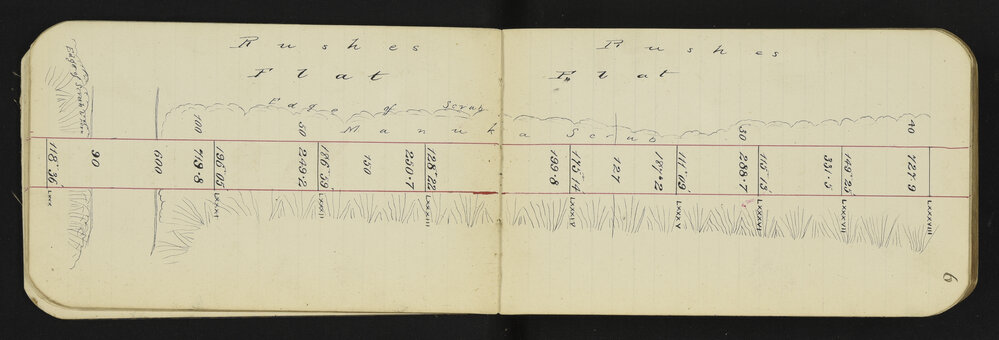 Rushes
Flat
Rushes
Flat
Edge of Scrub
Manuka Scrub
100
50
50
40
118° 36'
90
600
719.8
196° 05'
249.2
186° 59'
150
250.7
128° 22'
199.8
175° 14'
127
111° 09'
288.7
115° 13'
331.5
149° 25'
LXXX
LXXXI
LXXXII
LXXXIII
LXXXIV
LXXXV
LXXXVI
LXXXVII
LXXXVIII
6